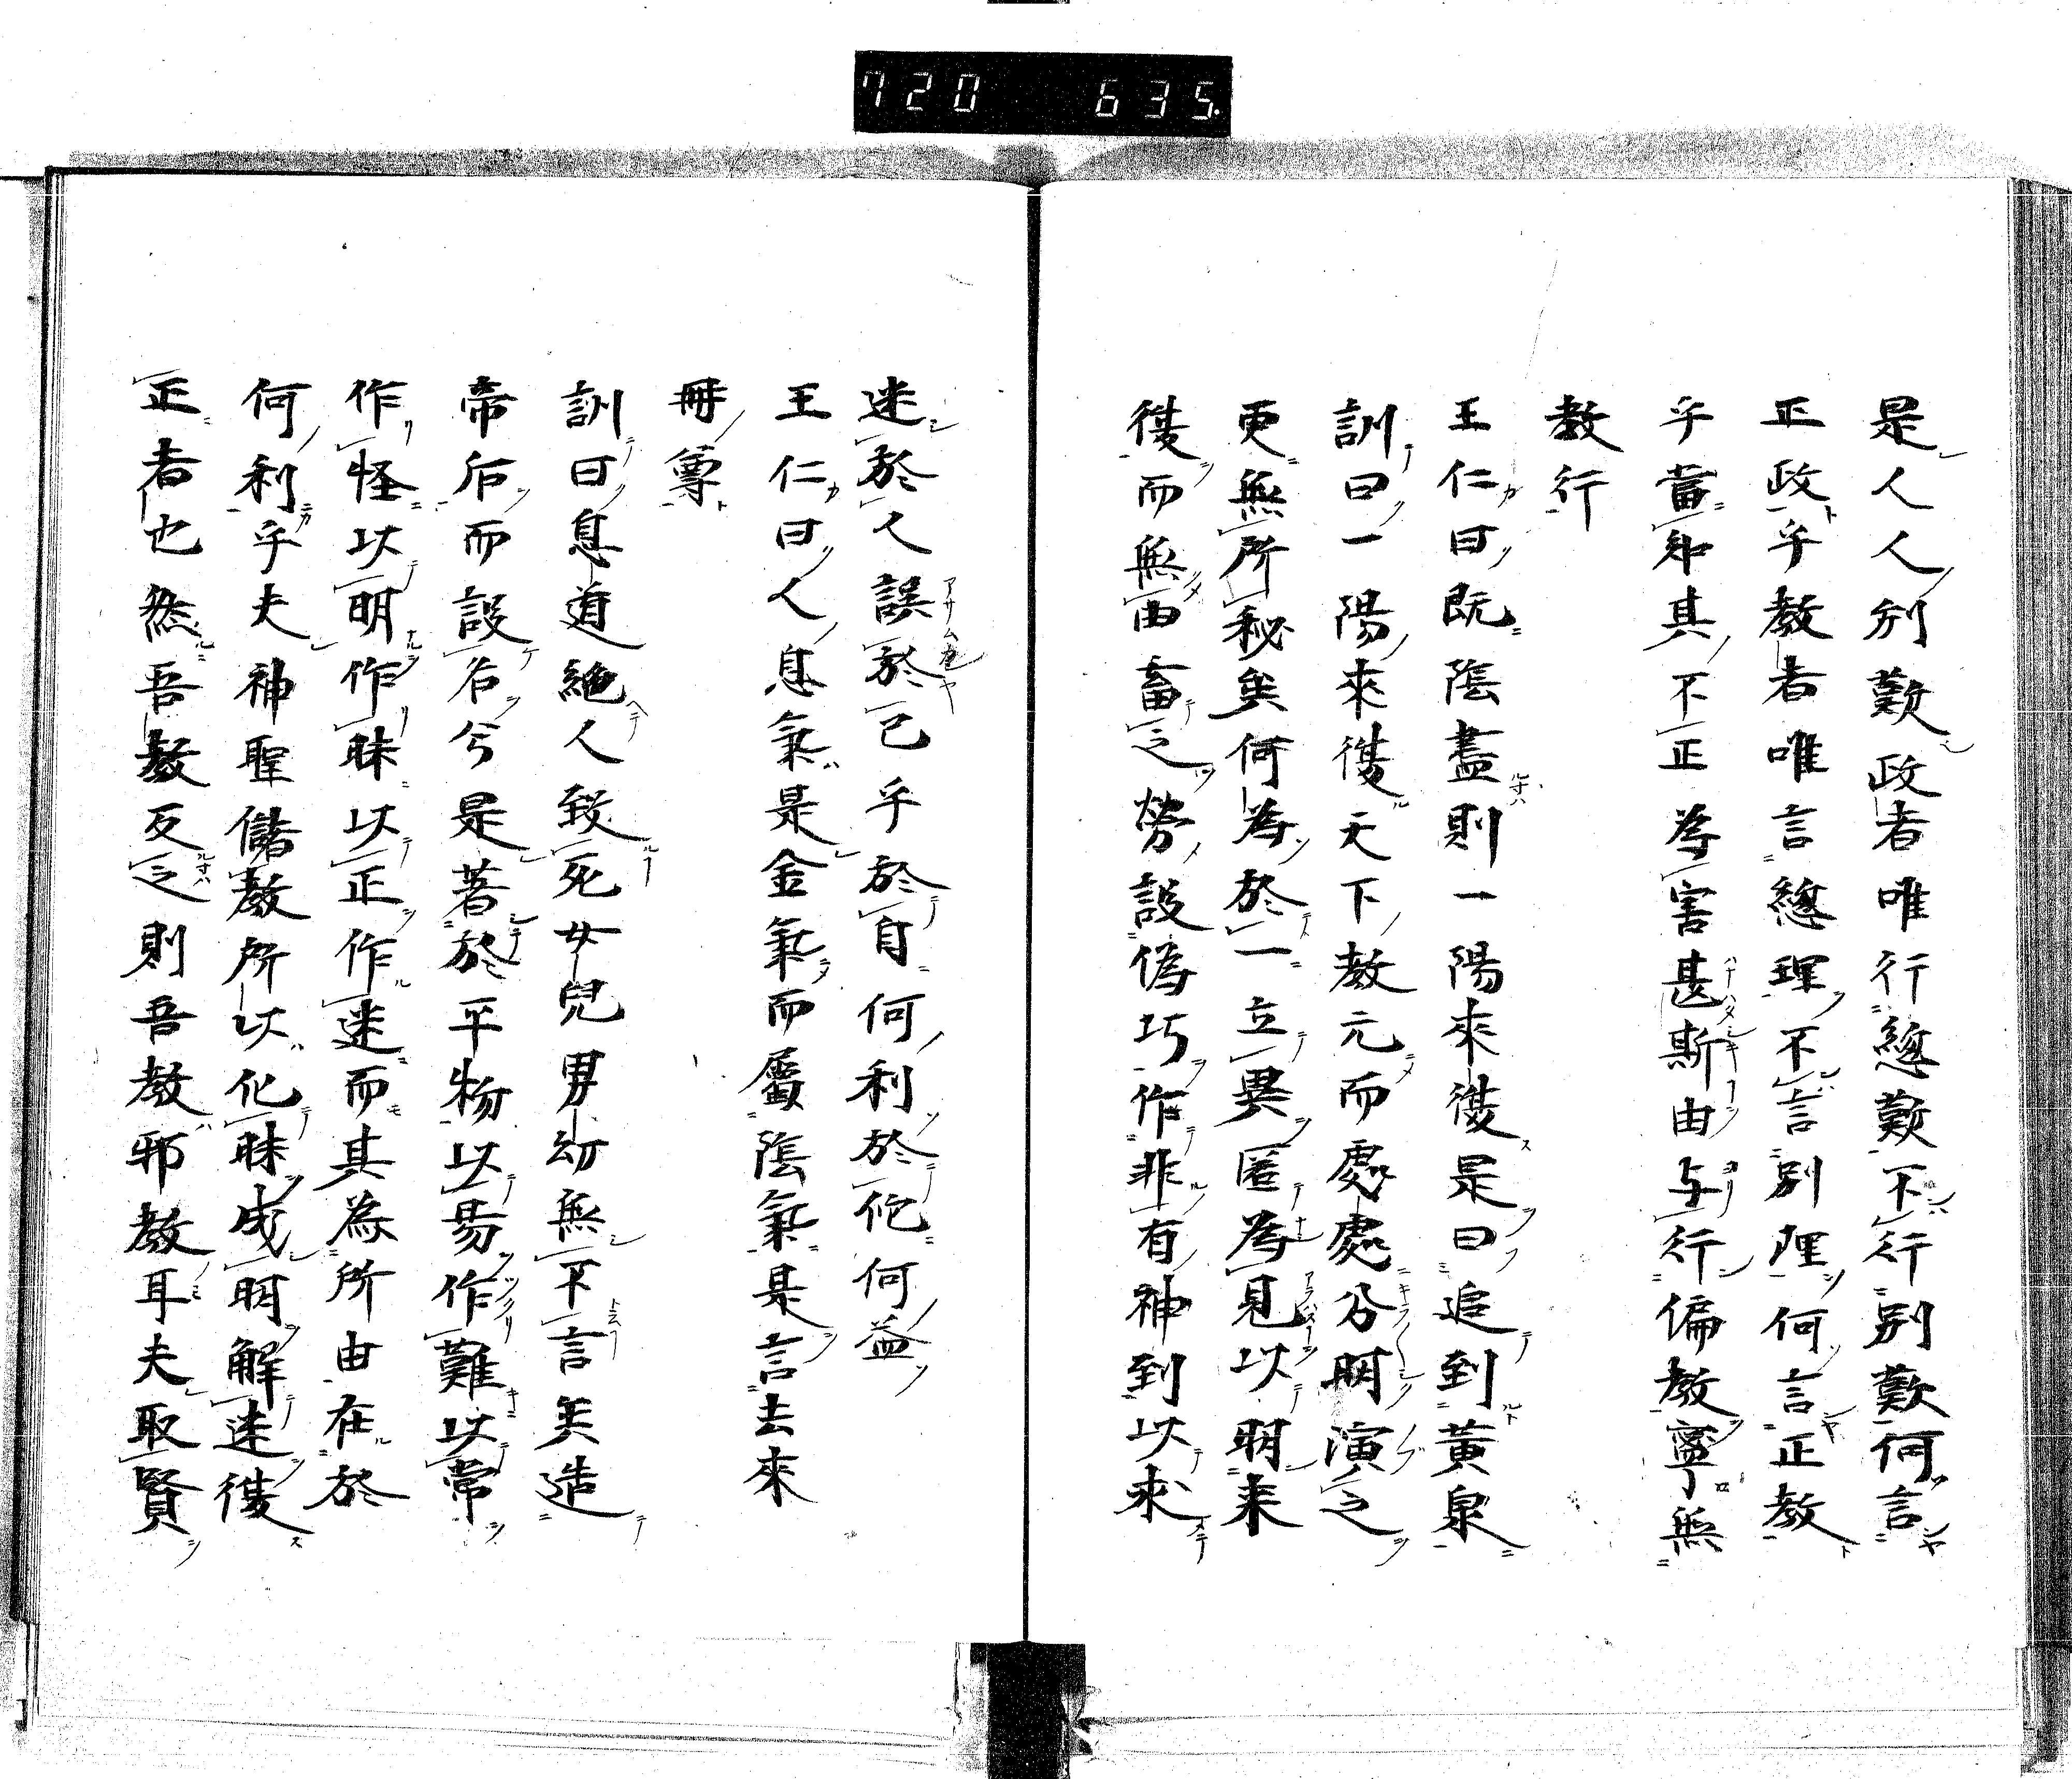 720 635
是人人別歎政者唯行總歎不行別歎何言
正政乎教者唯言總理不言別理何言正教
乎當知其不正為害甚斯由与行偏教寧無
教行
王仁曰既陰盡則一陽來復是曰追到黃泉
訓曰一陽來復天下教元而處處分明演之
更無所秘矣何為於一立異匿為見以明来
復而無由畜之勞設偽巧作非有神到以求
迷於人誤於己乎於自何利於佗何益
王仁曰人息氣是金氣而屬陰氣是言去來
冊尊
訓曰息道絶人致死女兒男幼無不言矣造
帝后而設名今是著於平物以易作難以常
作怪以明作昧以正作迷而其為所由在於
何利乎夫神聖儲教所以化昧成明解迷復
正者也然吾教反之則吾教邪教耳夫取賢